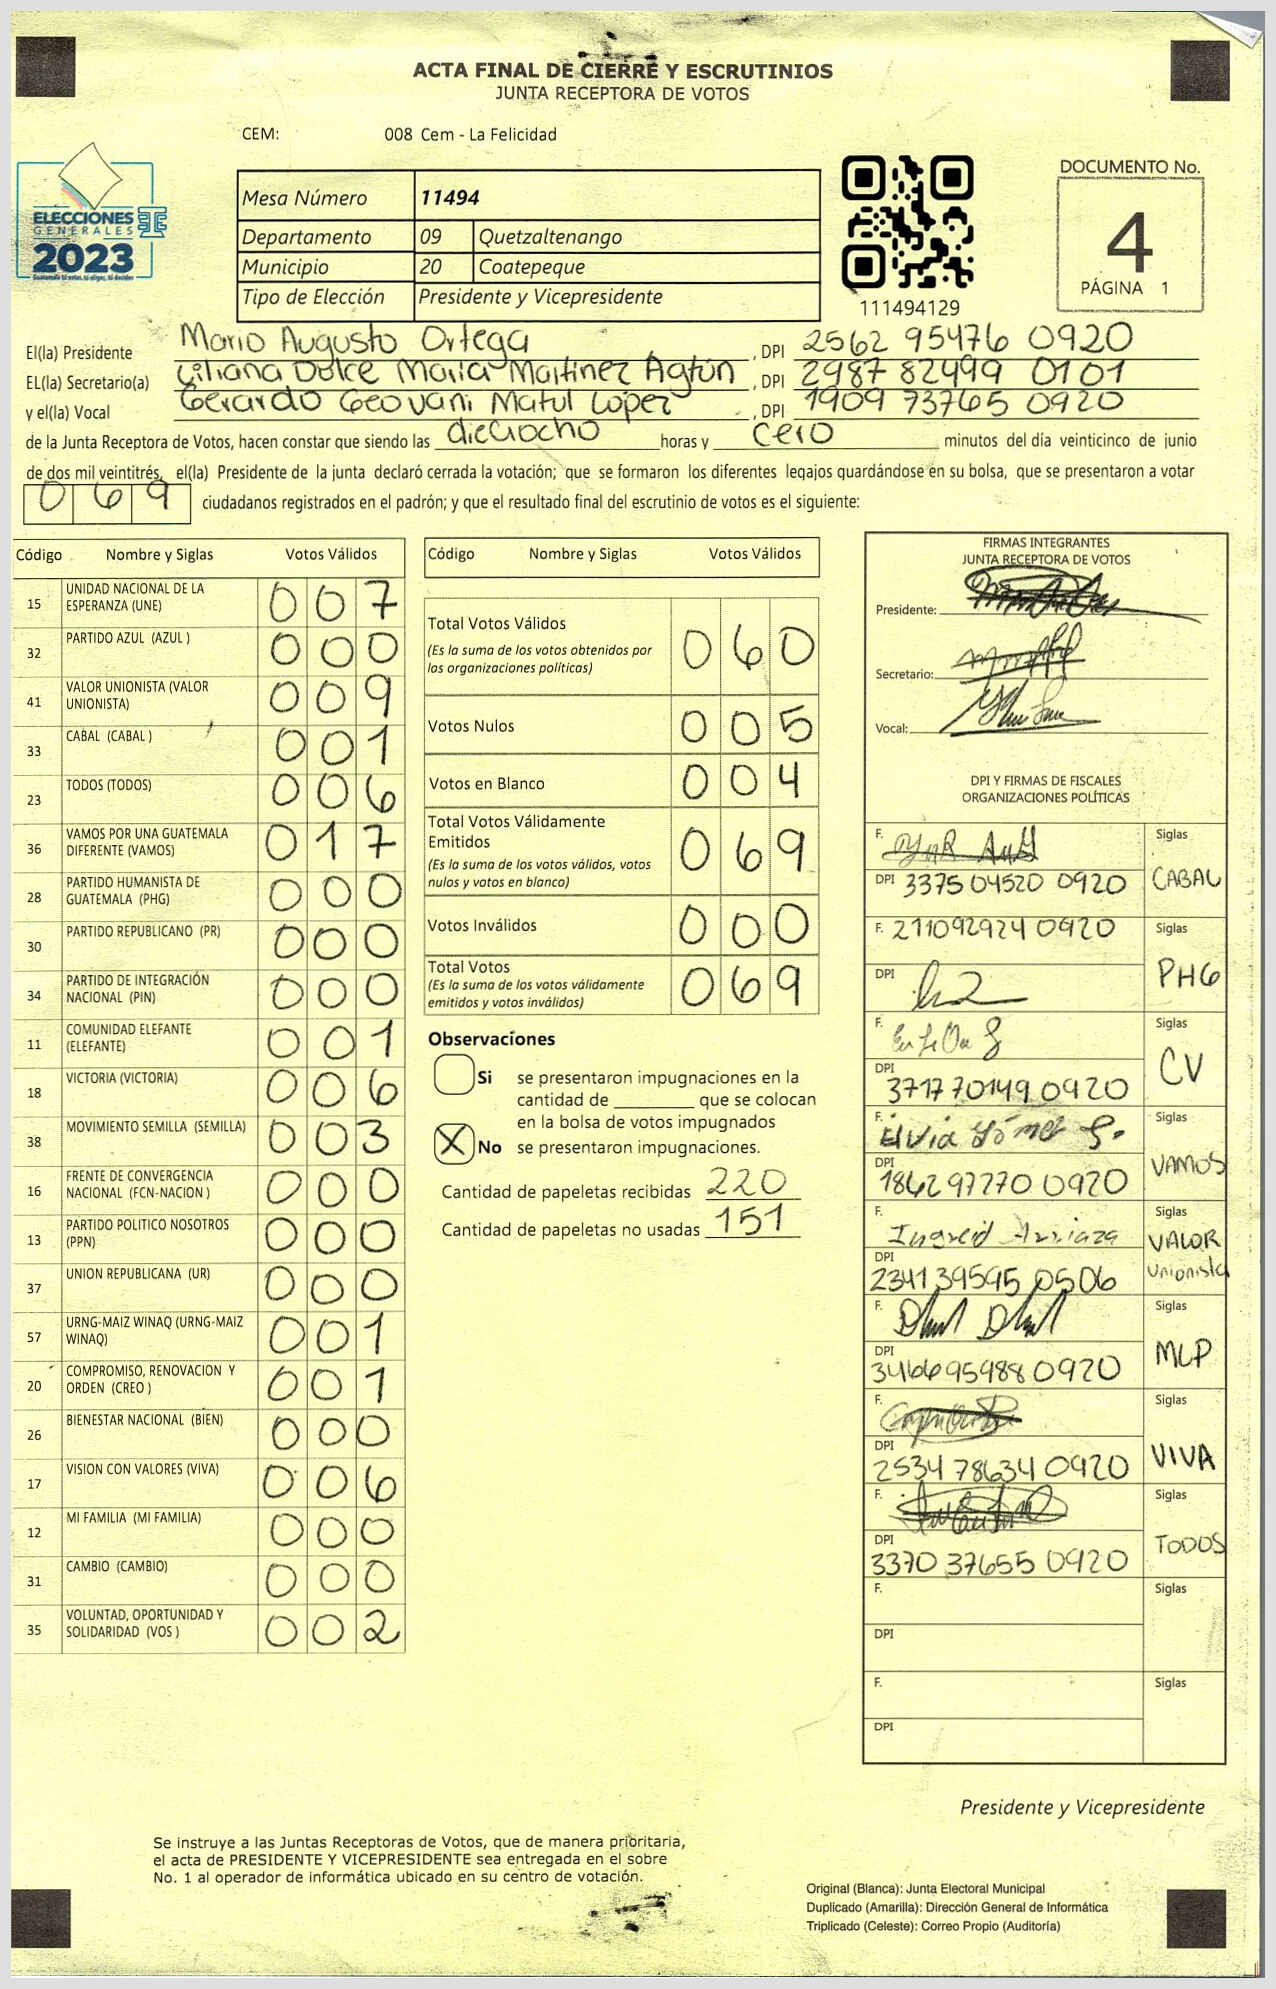 ACTA FINAL DE CIERRE Y ESCRUTINIOS
JUNTA RECEPTORA DE VOTOS
CEM: 008 Cem - La Felicidad
ELECCIONES
GENERALES
2023
Mesa Número 11494
Departamento 09 Quetzaltenango
Municipio 20 Coatepeque
Tipo de Elección Presidente y Vicepresidente
111494129
DOCUMENTO No.
4
PÁGINA 1
El(la) Presidente Mario Augusto Ortega, DPI 2562 95476 0920
EL(la) Secretario(a) Liliana Dolce María Martinez Agtún, DPI 2987 82499 0101
y el(la) Vocal Gerardo Geovani Matul Lopez, DPI 1909 73765 0920
de la Junta Receptora de Votos, hacen constar que siendo las dieciocho horas y cero minutos del día veinticinco de junio
de dos mil veintitrés, el(la) Presidente de la junta declaró cerrada la votación; que se formaron los diferentes legajos guardándose en su bolsa, que se presentaron a votar
069 ciudadanos registrados en el padrón; y que el resultado final del escrutinio de votos es el siguiente:
Código Nombre y Siglas Votos Válidos
15 UNIDAD NACIONAL DE LA ESPERANZA (UNE) 007
32 PARTIDO AZUL (AZUL ) 000
41 VALOR UNIONISTA (VALOR UNIONISTA) 009
33 CABAL (CABAL ) 001
23 TODOS (TODOS) 006
36 VAMOS POR UNA GUATEMALA DIFERENTE (VAMOS) 017
28 PARTIDO HUMANISTA DE GUATEMALA (PHG) 000
30 PARTIDO REPUBLICANO (PR) 000
34 PARTIDO DE INTEGRACIÓN NACIONAL (PIN) 000
11 COMUNIDAD ELEFANTE (ELEFANTE) 001
18 VICTORIA (VICTORIA) 006
38 MOVIMIENTO SEMILLA (SEMILLA) 003
16 FRENTE DE CONVERGENCIA NACIONAL (FCN-NACION ) 000
13 PARTIDO POLITICO NOSOTROS (PPN) 000
37 UNION REPUBLICANA (UR) 000
57 URNG-MAIZ WINAQ (URNG-MAIZ WINAQ) 001
20 COMPROMISO, RENOVACION Y ORDEN (CREO ) 001
26 BIENESTAR NACIONAL (BIEN) 000
17 VISION CON VALORES (VIVA) 006
12 MI FAMILIA (MI FAMILIA) 000
31 CAMBIO (CAMBIO) 000
35 VOLUNTAD, OPORTUNIDAD Y SOLIDARIDAD (VOS ) 002
Código Nombre y Siglas Votos Válidos
Total Votos Válidos 060
(Es la suma de los votos obtenidos por
las organizaciones políticas)
Votos Nulos 005
Votos en Blanco 004
Total Votos Válidamente
Emitidos 069
(Es la suma de los votos válidos, votos
nulos y votos en blanco)
Votos Inválidos 000
Total Votos 069
(Es la suma de los votos válidamente
emitidos y votos inválidos)
Observaciones
Si se presentaron impugnaciones en la
cantidad de ________ que se colocan
en la bolsa de votos impugnados
X No se presentaron impugnaciones.
Cantidad de papeletas recibidas 220
Cantidad de papeletas no usadas 151
FIRMAS INTEGRANTES
JUNTA RECEPTORA DE VOTOS
Presidente:
Secretario:
Vocal:
DPI Y FIRMAS DE FISCALES
ORGANIZACIONES POLÍTICAS
F. Siglas
DPI 3375 04520 0920 CABAL
F. 211092924 0920 Siglas
DPI PHG
F. Siglas
DPI 3717 70149 0920 CV
F. Elvia Gómez G. Siglas
DPI 1862 97270 0920 VAMOS
F. Ingreid Arriaza Siglas
DPI 2341 39595 0506 VALOR Unionista
F. Siglas
DPI 3466 95988 0920 MLP
F. Siglas
DPI 2534 78634 0920 VIVA
F. Siglas
DPI 3370 37655 0920 TODOS
F. Siglas
DPI
F. Siglas
DPI
Presidente y Vicepresidente
Se instruye a las Juntas Receptoras de Votos, que de manera prioritaria,
el acta de PRESIDENTE Y VICEPRESIDENTE sea entregada en el sobre
No. 1 al operador de informática ubicado en su centro de votación.
Original (Blanca): Junta Electoral Municipal
Duplicado (Amarilla): Dirección General de Informática
Triplicado (Celeste): Correo Propio (Auditoría)